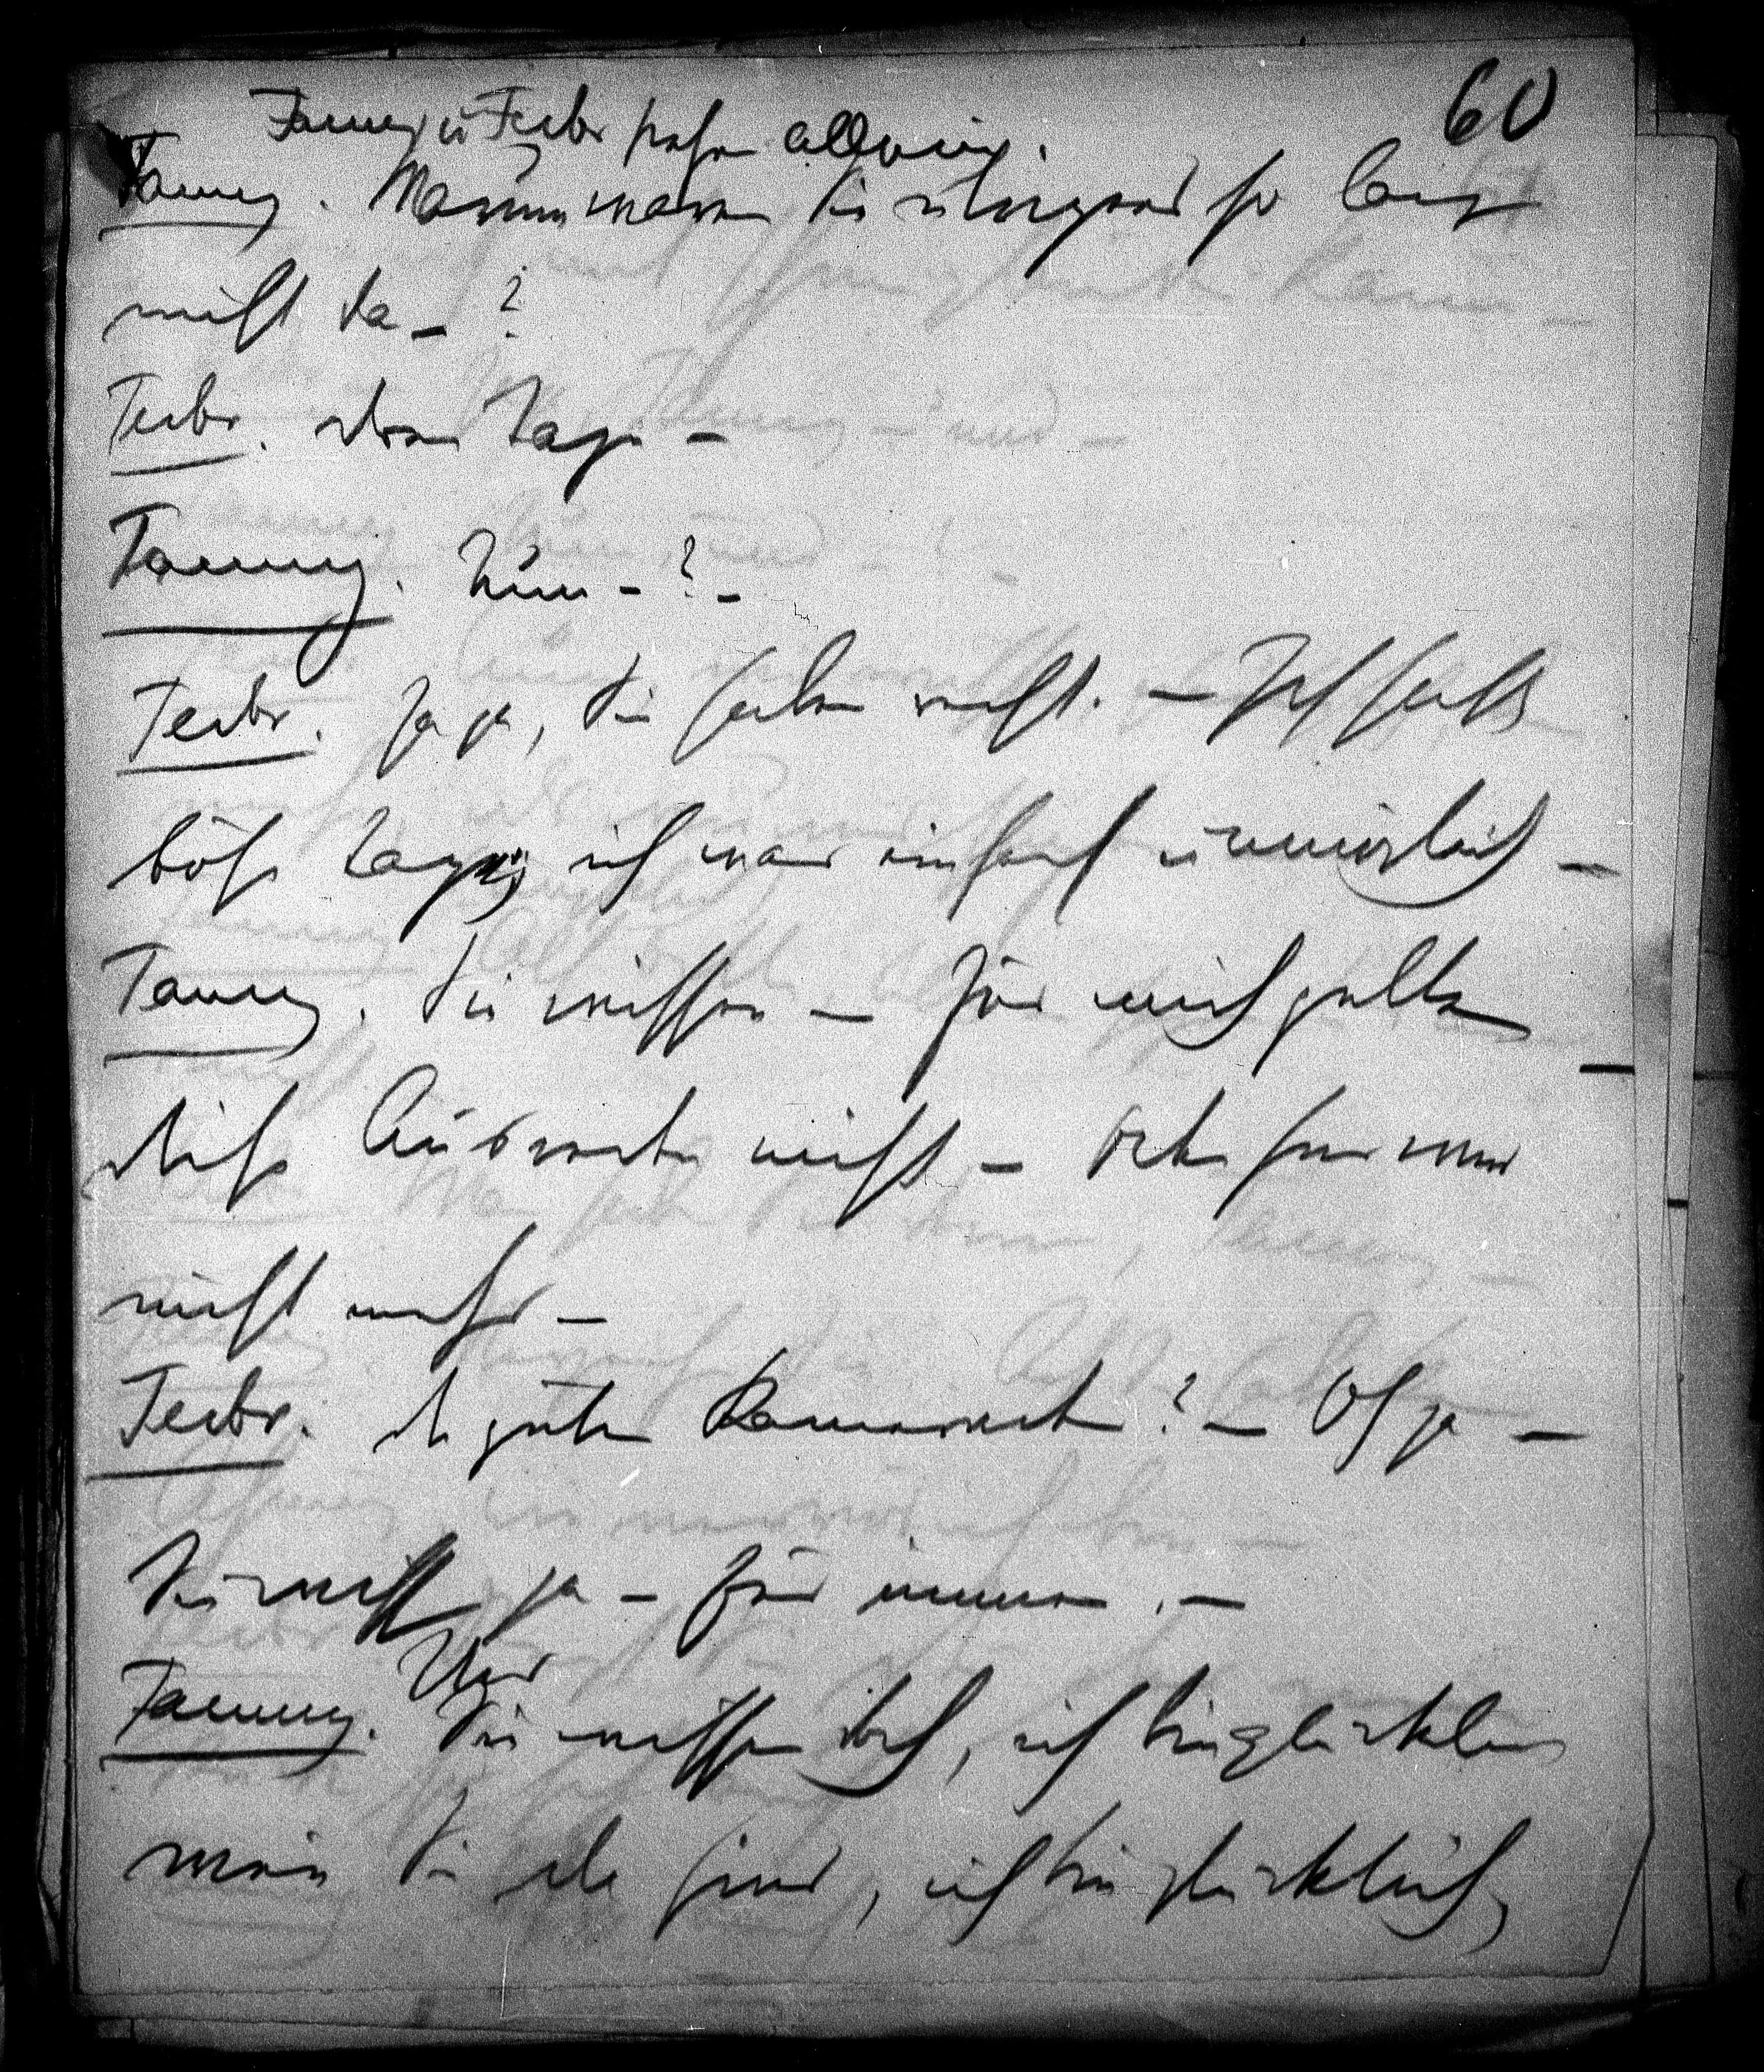 60
Fanny u Fedor stehn allein.
Fanny. Warum waren Sie übrigens so lang
nicht da – ?
Fedor. Drei Tage –
Fanny. Nun – ? –
Fedor. Ja ja, Sie haben recht. – Ich hatte
böse Tage; ich war einfach unmöglich –
Fanny. Sie wissen – für mich gelten
diese Ausreden nicht – oder sind wir
nicht mehr –
Fedor. Die guten Kameraden? – Oh ja –
Sie wissens ja – für immer. –
Und
Fanny. Sie wissen doch, ich bin glücklich
wenn Sie da sind, ich bin glücklich,